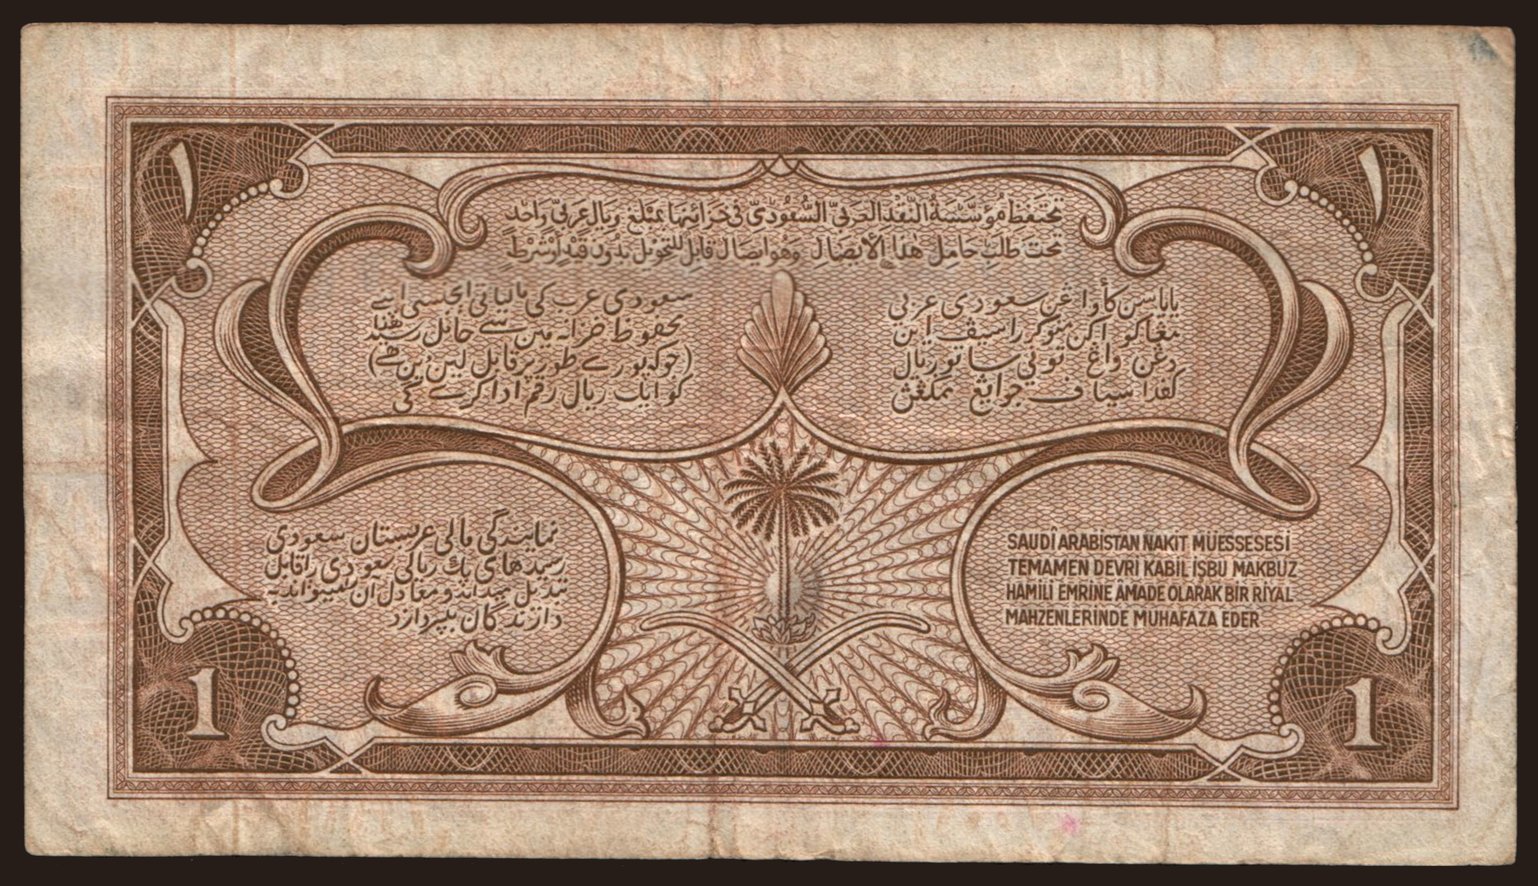 ١
١
تحتفظ مؤسسة النقد العربي السعودي في خزائنها بمبلغ ريال عربي واحد
تحت طلب حامل هذا الايصال وهو ايصال قابل للتحويل بدون قيد او شرط
سعودی عرب کی مالیاتی ایجنسی اپنے
محفوظ خزانہ میں سے حامل رسید ھذا
(جو کہ پورے طور پر قابل لین دین ہے)
کو ایک ریال رقم ادا کرے گی
سعودي عربي
دغن واغ توني ساتو ريال
نمایندگی مالی عربستان سعودی
رسیدهای یک ریالی سعودی را قابل
تبدیل میداند و معادل آن
دارندگان بپردازد
SAUDİ ARABİSTAN NAKİT MÜESSESESİ
TEMAMEN DEVRİ KABİL İŞBU MAKBUZ
HAMİLİ EMRİNE ÂMADE OLARAK BİR RİYAL
MAHZENLERİNDE MUHAFAZA EDER
1
1